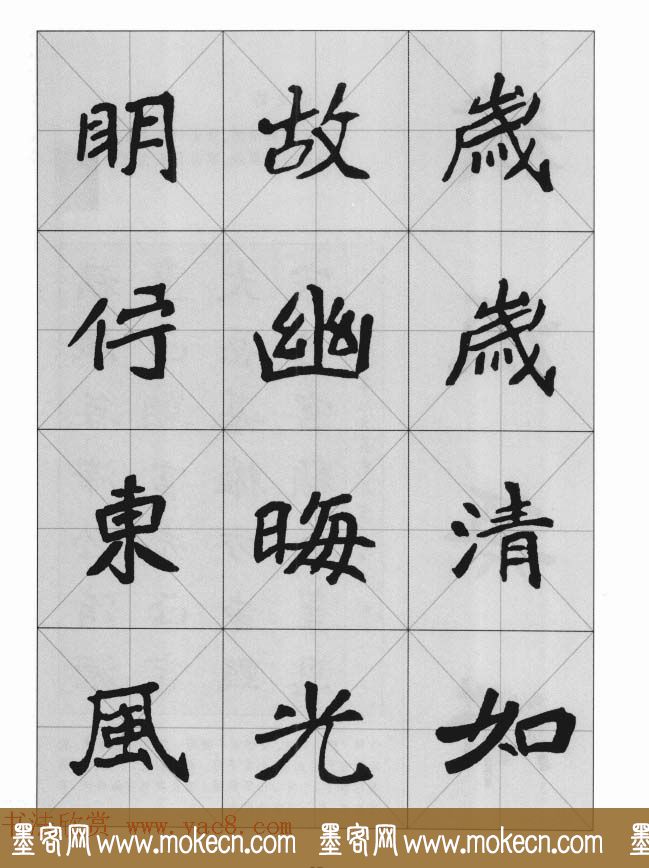 嵗嵗清如
故幽晦光
眀佇東風
书法欣赏 www.yac8.com
墨客网 www.mokecn.com 墨客网 www.mokecn.com